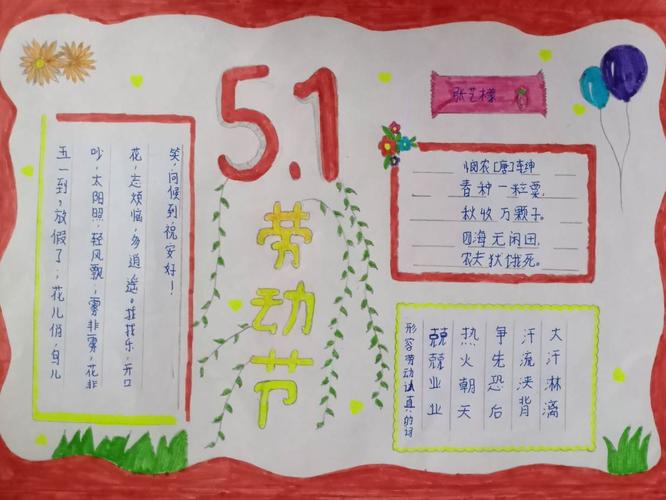 5.1
劳动节
五一到，放假了，花儿俏，鸟儿
吵，太阳照，轻风飘；雾非雾，花非
花，忘烦恼，多逍遥。找找乐，开口
笑，问候到，祝安好！
张艺檬
悯农[唐]李绅
春种一粒粟，
秋收万颗子。
四海无闲田，
农夫犹饿死。
形容劳动认真的词
兢兢业业
热火朝天
争先恐后
汗流浃背
大汗淋漓